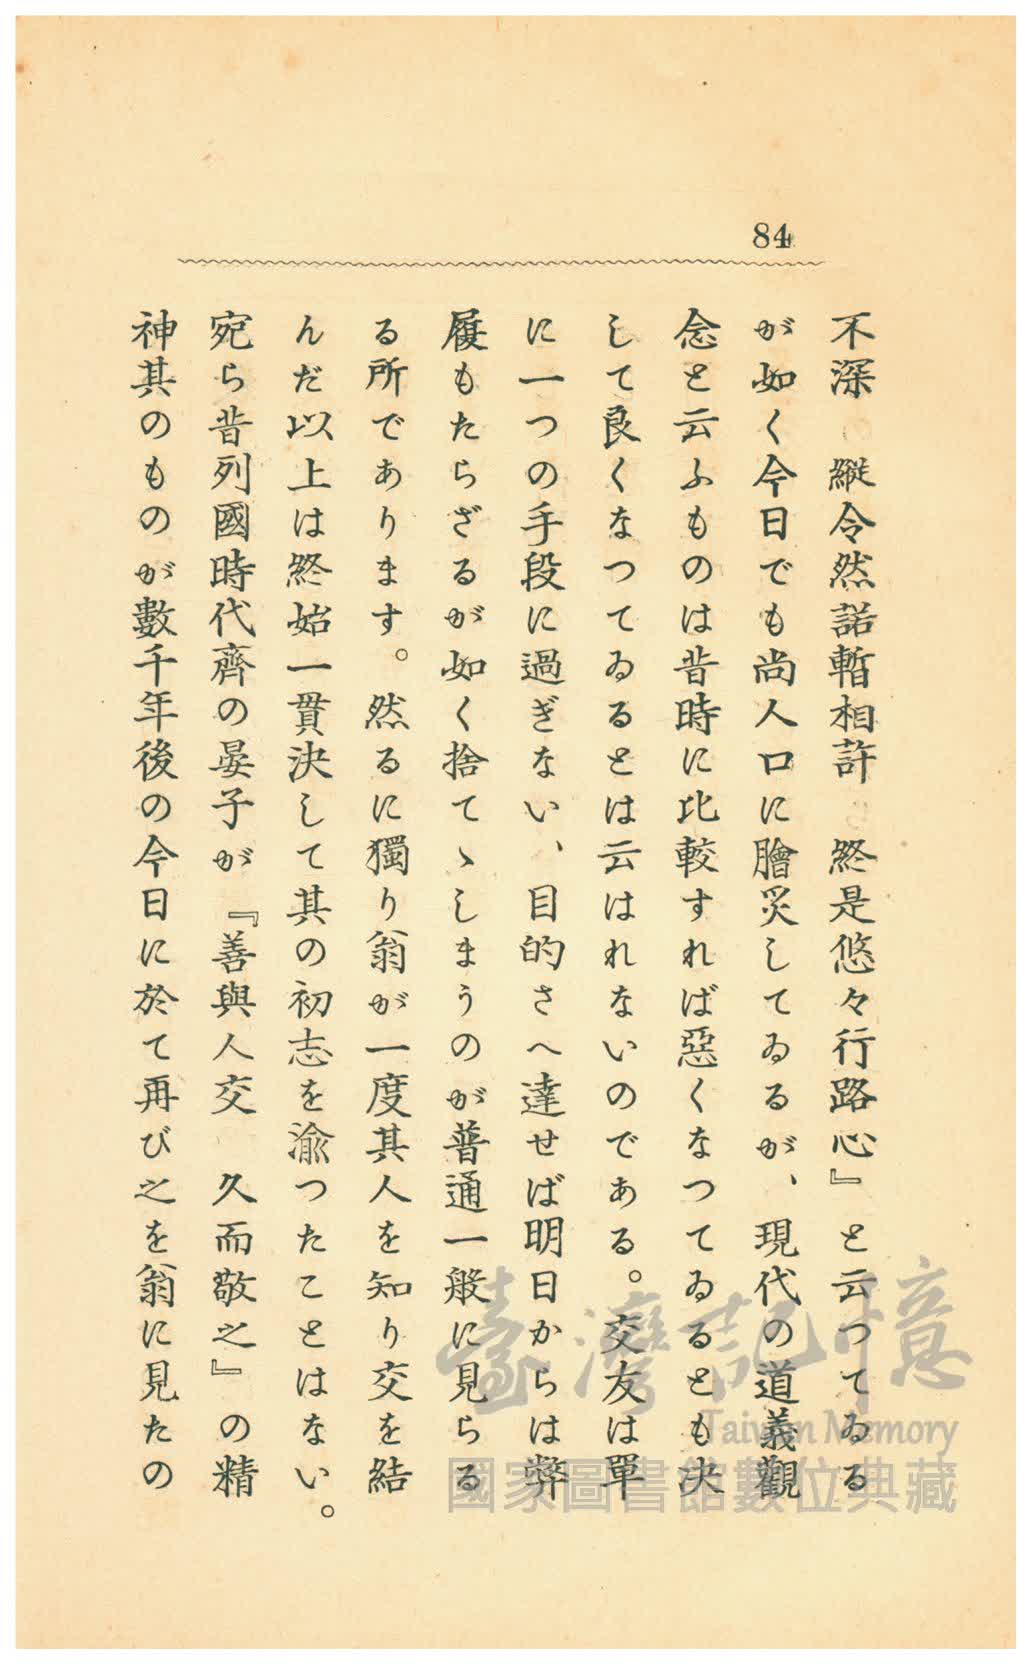 84
不深　縱令然諾暫相許　終是悠々行路心』と云つてゐる
が如く今日でも尚人口に膾炙してゐるが、現代の道義觀
念と云ふものは昔時に比較すれば惡くなつてゐるとも決
して良くなつてゐるとは云はれないのである。交友は單
に一つの手段に過ぎない、目的さへ達せば明日からは弊
履もたらざるが如く捨てゝしまうのが普通一般に見らる
る所であります。然るに獨り翁が一度其人を知り交を結
んだ以上は終始一貫決して其の初志を渝つたことはない。
宛ら昔列國時代齊の晏子が『善與人交　久而敬之』の精
神其のものが數千年後の今日に於て再び之を翁に見たの
臺灣記憶
Taiwan Memory
國家圖書館數位典藏